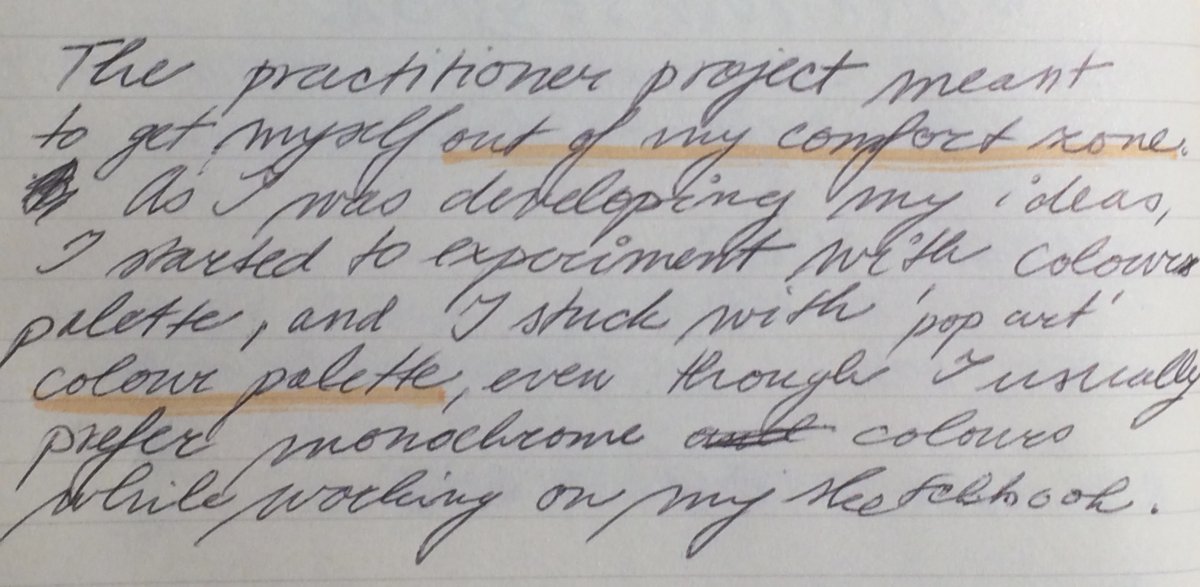 The practitioner project meant
to get myself out of my comfort zone.
As I was developing my ideas,
I started to experiment with colour
palette, and I stuck with 'pop art'
colour palette, even though I usually
prefer monochrome colours
while working on my sketchbook.